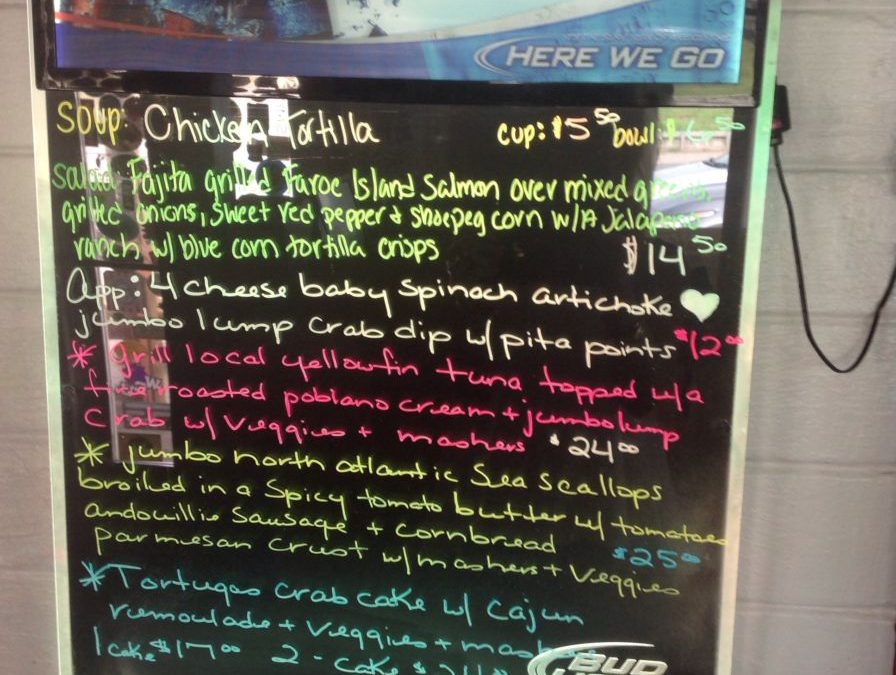 HERE WE GO
Soup: Chicken Tortilla cup: $5 50 bowl: $6 50
Salad: Fajita grilled Faroe Island Salmon over mixed greens,
grilled onions, sweet red pepper & shoepeg corn w/A Jalapeno
ranch w/ blue corn tortilla crisps $14 50
App: 4 cheese baby spinach artichoke
jumbo lump crab dip w/ pita points $12 00
* grill local yellowfin tuna topped w/a
fire roasted poblano cream + jumbo lump
crab w/ veggies + mashers $24 00
* jumbo north atlantic Sea scallops
broiled in a Spicy tomato butter w/ tomatoes
andouillie Sausage + cornbread
parmesan crust w/mashers + veggies $25 00
* Tortugas crab cake w/ Cajun
remoulade + veggies +
1 cake $17 00 2 - cake $
BUD